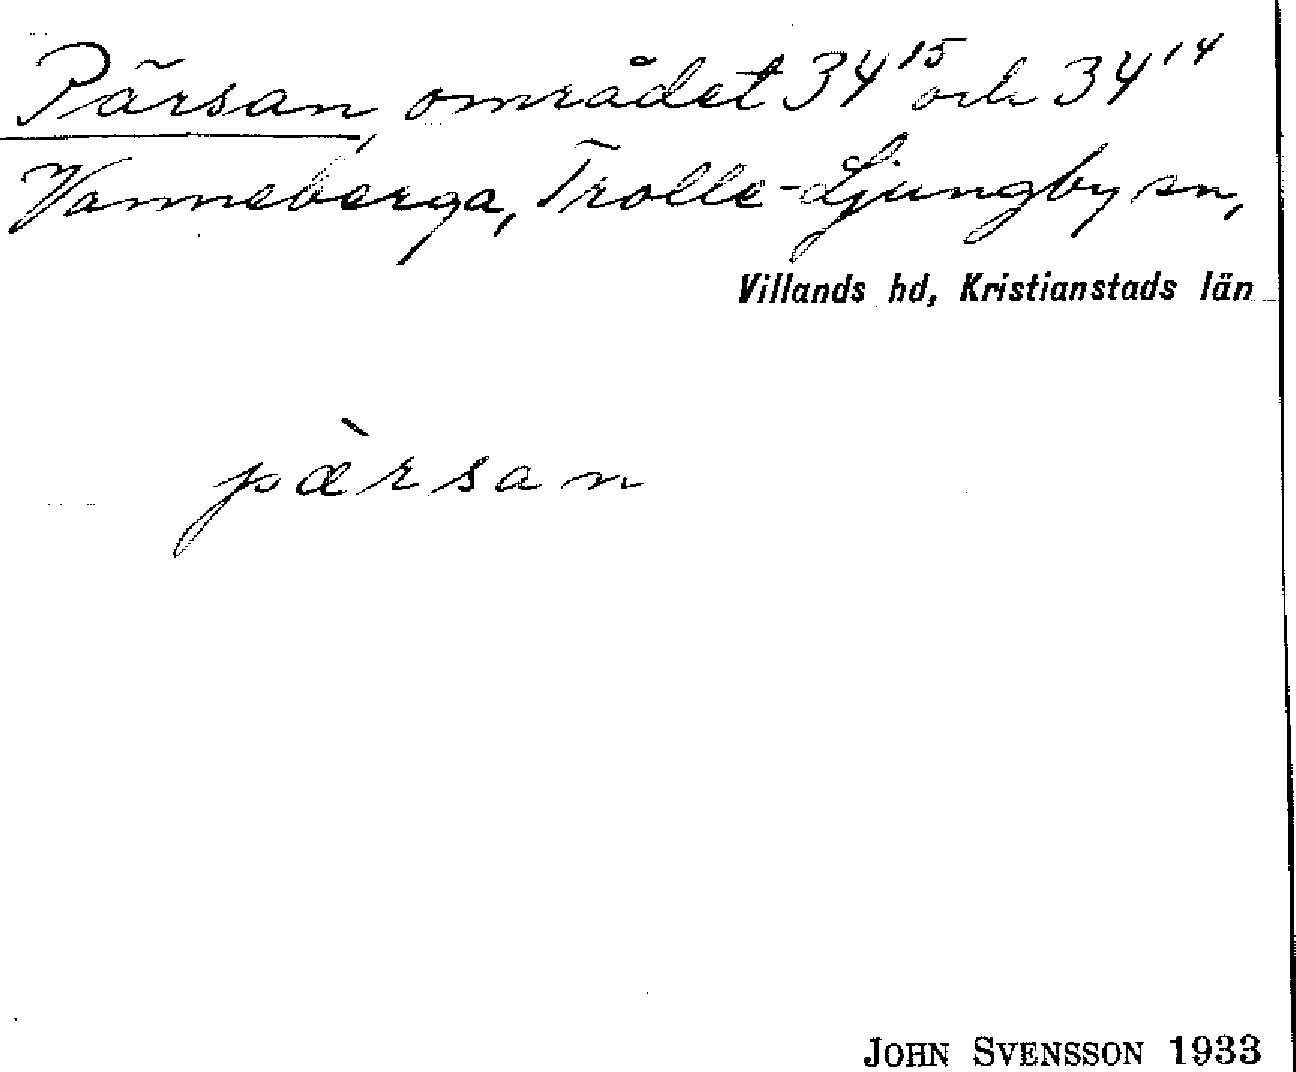 Pärsan, området 34¹⁵ och 34¹⁴
Vanneberga, Trolle-Ljungby sn,
Villands hd, Kristianstads län
pæ̀rsan
JOHN SVENSSON 1933